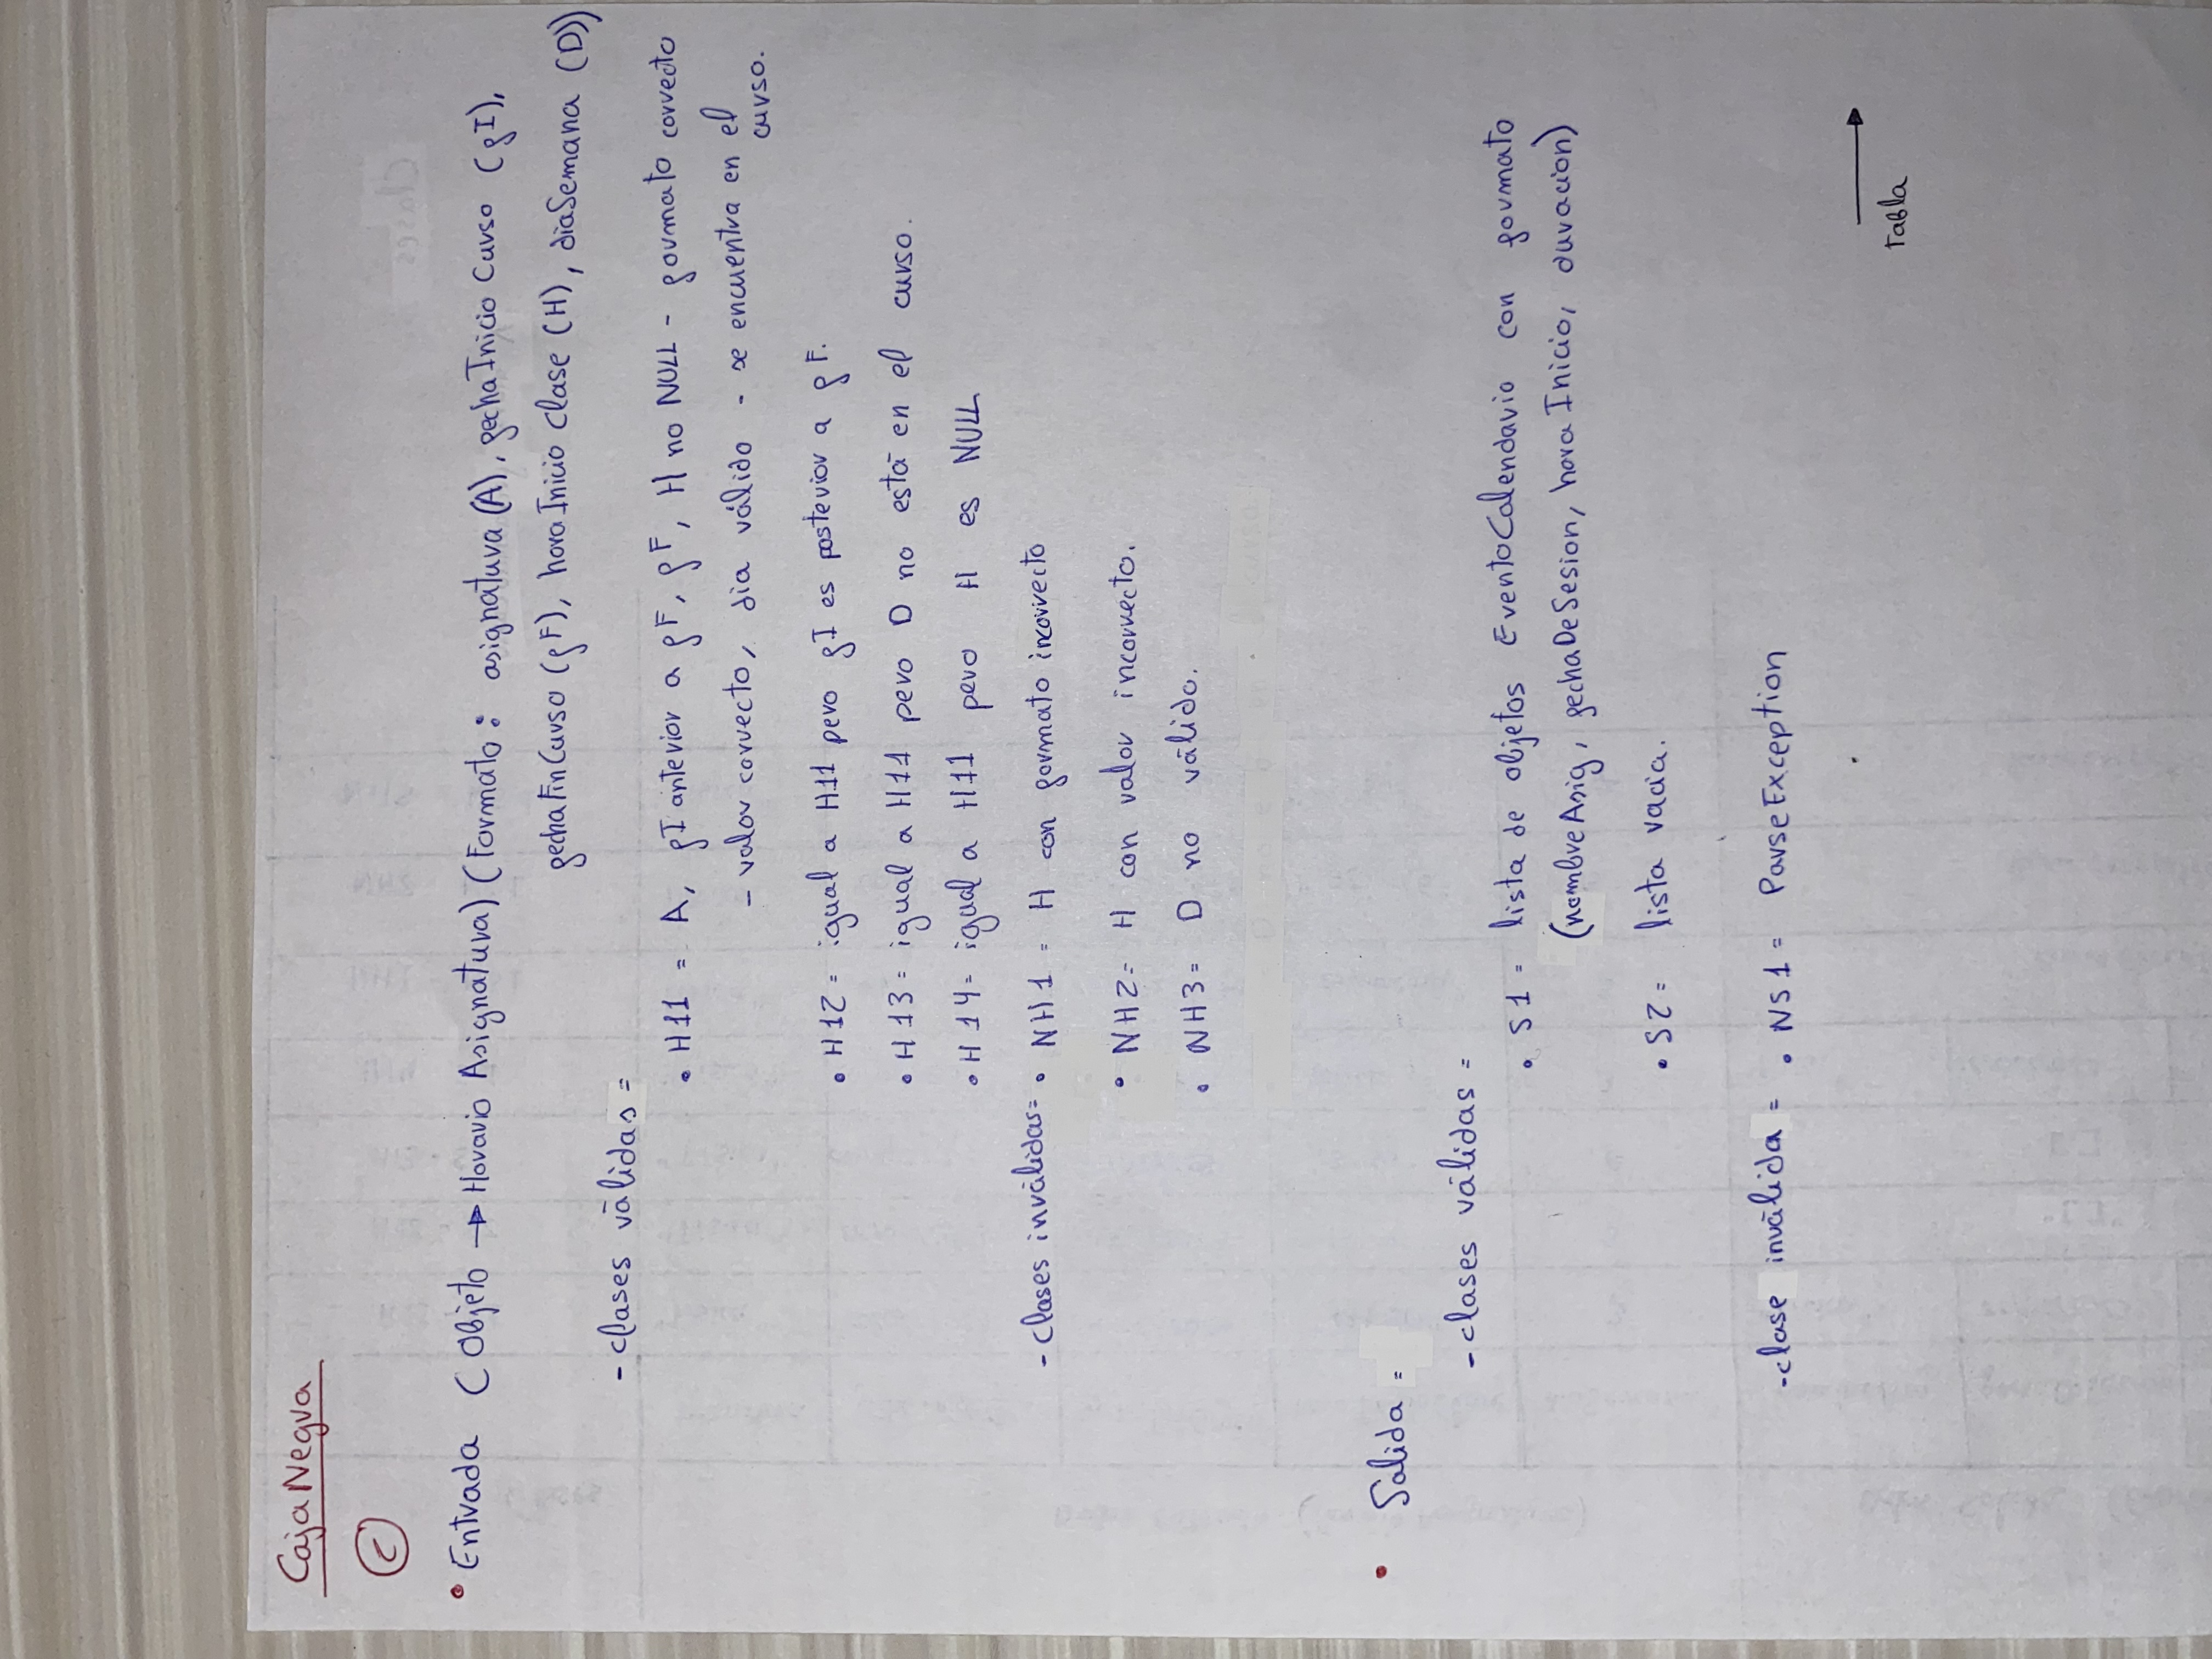 Caja Negra
C
• Entrada (Objeto → Horario Asignatura) (Formato: asignatura (A), fechaInicio Curso (fI),
fechaFinCurso (fF), horaInicio Clase (H), diaSemana (D))
- clases válidas =
• H11 = A, fI anterior a fF, fF, H no NULL - formato correcto
- valor correcto, dia válido - se encuentra en el
curso.
• H12 = igual a H11 pero fI es posterior a fF.
• H13 = igual a H11 pero D no está en el curso.
• H14 = igual a H11 pero H es NULL
- clases inválidas = • NH1 = H con formato incorrecto
• NH2 = H con valor incorrecto.
• NH3 = D no válido.
• Salida =
- clases válidas =
• S1 = lista de objetos EventoCalendario con formato
(nombreAsig, fechaDeSesion, horaInicio, duracion)
• S2 = lista vacia.
- clase inválida = • NS1 = ParseException
→
Tabla